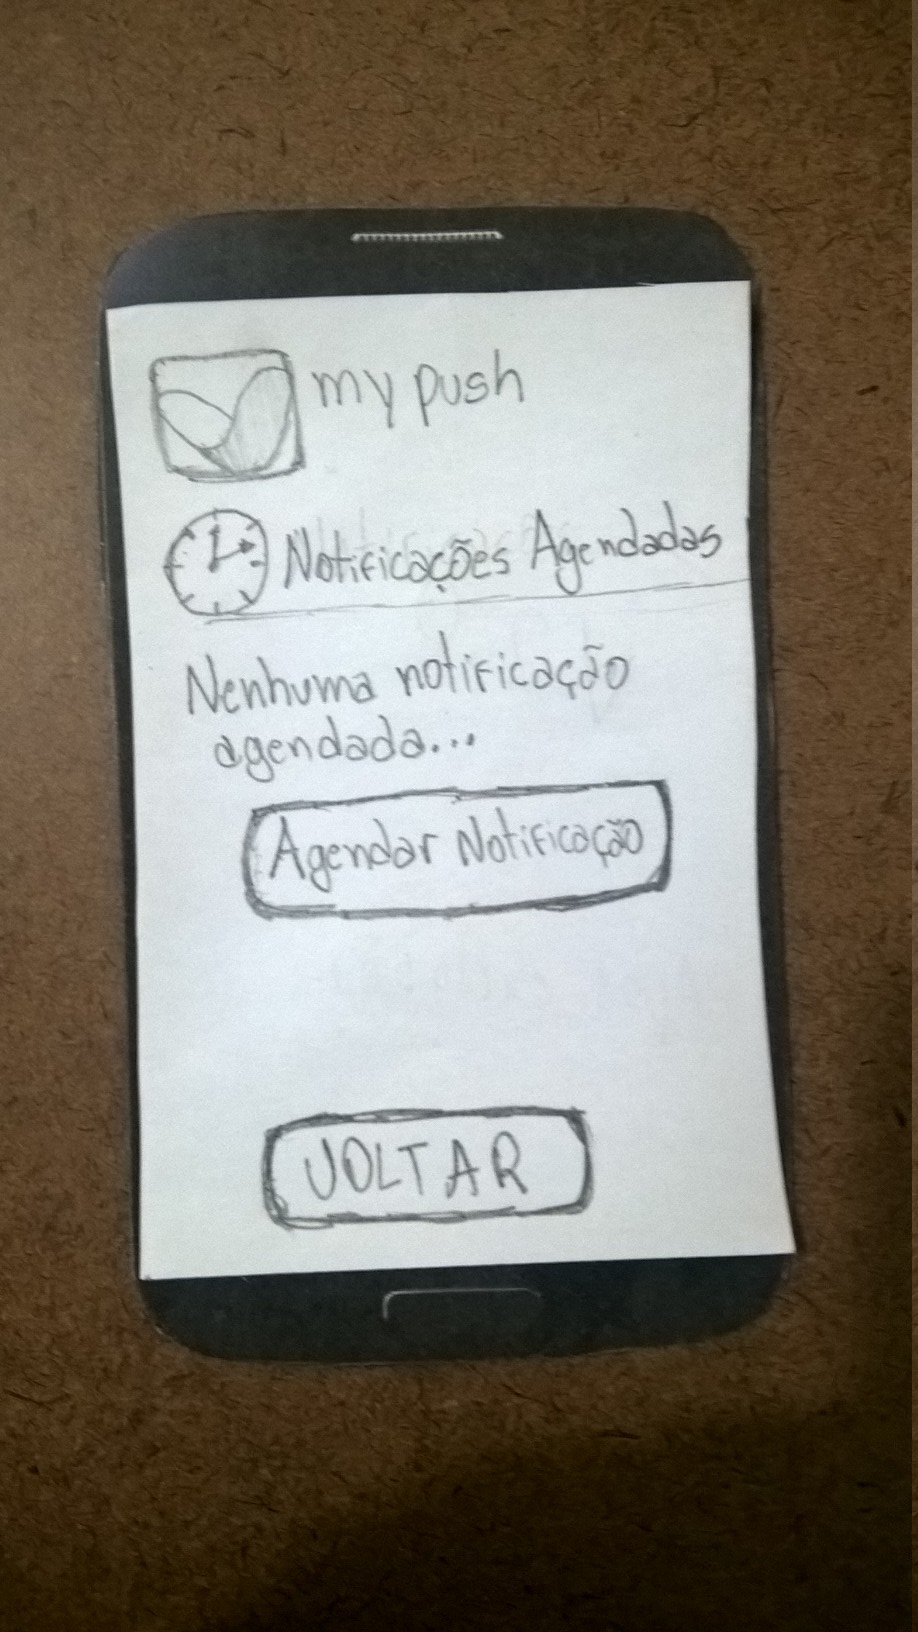 my push
Notificações Agendadas
Nenhuma notificação
agendada...
Agendar Notificação
VOLTAR